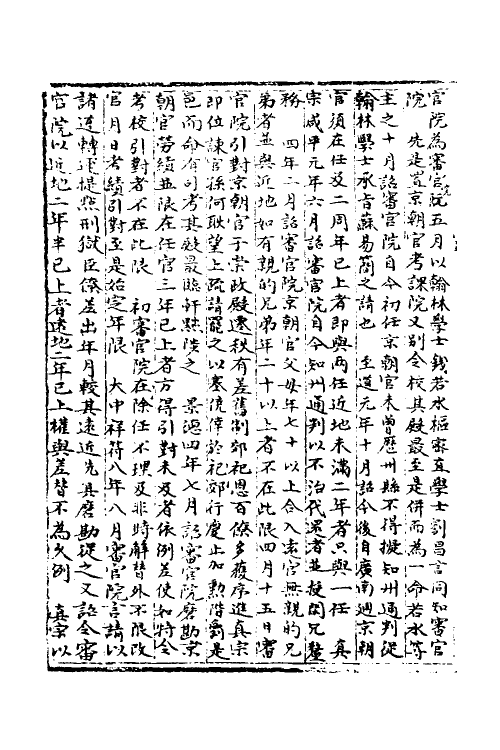 官院為審官院五月以翰林學士錢若水樞審直學士劉昌言同知審官
院　先是置京朝官考課院又別令校其殿最至是併而為一命若水等
主之十月詔審官院自今初任京朝官未曾歷州縣不得擬知州通判從
翰林學士承旨蘇易簡之請也　至道元年十月詔今後自廣南迴京朝
官須在任及二周年已上者即與兩任近地未滿二年者只與一任　真
宗咸平元年六月詔審官院自今知州通判以不治代還者並擬閑冗釐
務　四年二月詔審官院京朝官父母年七十以上合入遠官無親的兄
弟者並與近地如有親的兄弟年二十以上者不在此限四月十五日審
官院引對京朝官于崇政殿遷秩有差舊制郊祀恩百僚多獲序進真宗
即位諫官孫何耿望上疏請罷之以塞僥倖於祀郊行慶止加勳階爵是
邑而命有司考其殿最臨軒黜陟之　景德四年七月詔審官院磨勘京
朝官勞績並限在任官三年已上者方得引對未及者依例差使如特令
考校引對者不在此限　初審官院在除任不理及非時解替外不限改
官月日考績引對至是始定年限　大中祥符八年八月審官院言請以
諸道轉運提點刑獄臣僚差出年月較其遠近先具磨勘從之又詔令審
官院以近地二年半已上者遠地二年已上權與差替不為久例　真宗以